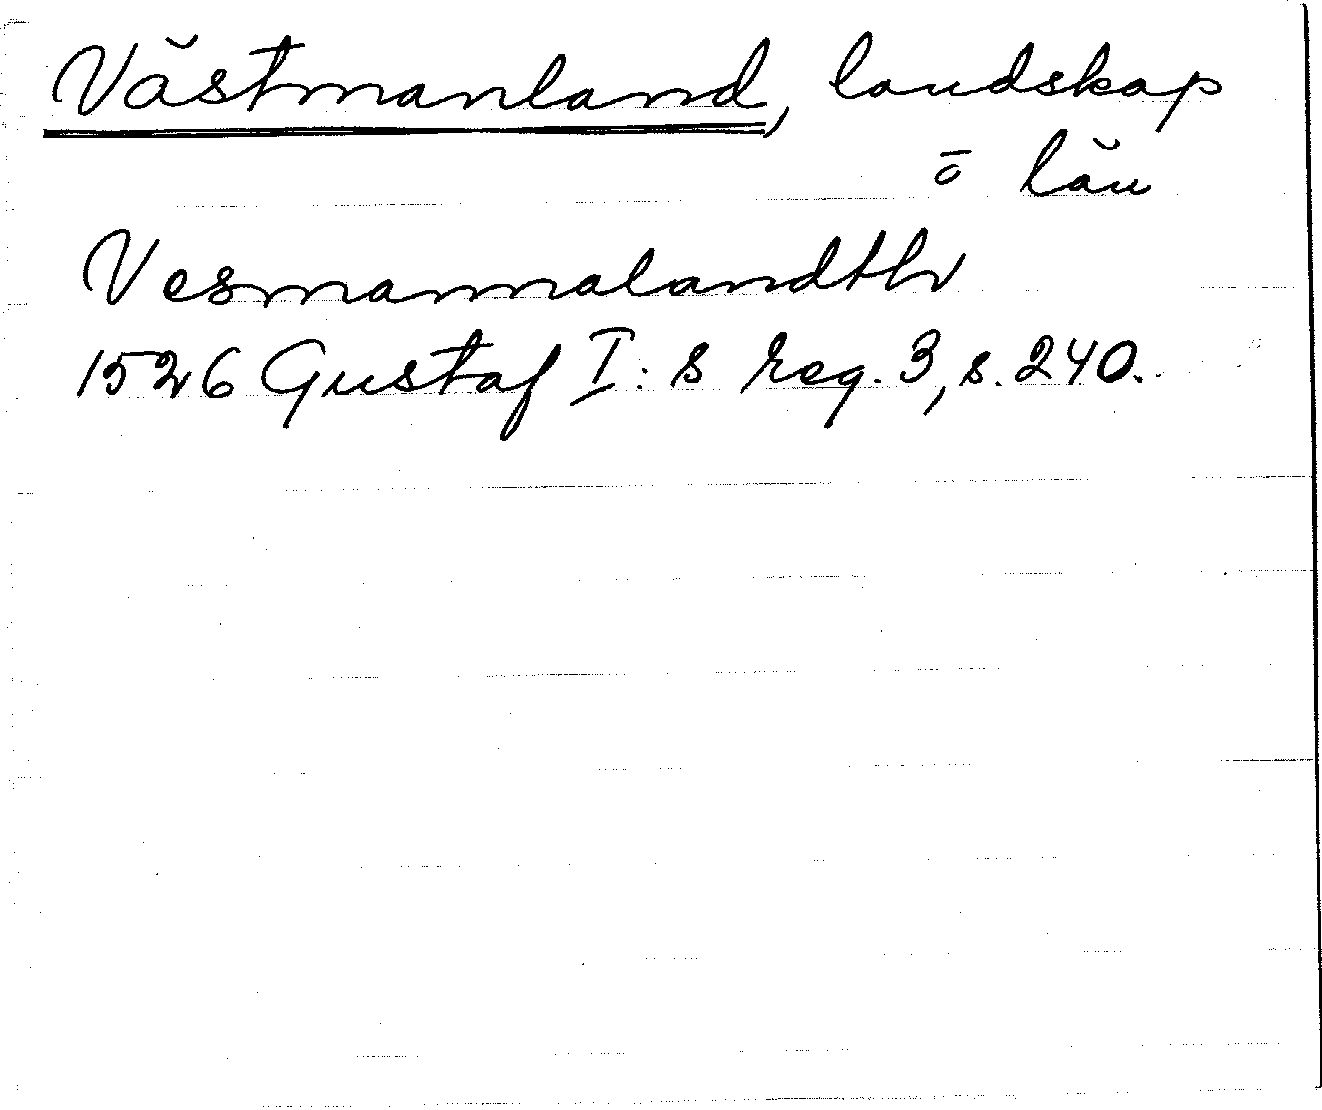 Västmanland, landskap
o län
Vesmannalandth
1526 Gustaf I:s reg. 3, s. 240.